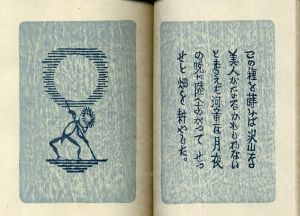 この種を蒔けば沢山な
美人がなるかもしれない
と考えた河童は月夜
の晩に陸へあがって せっ
せと畑を耕やした。